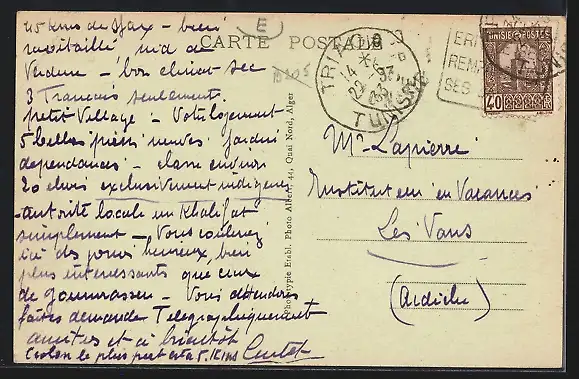 45 kms de Sfax – bien
ravitaillé nid de
verdure – bon climat sec
3 Français seulement.
petit village – votre logement
5 belles pièces neuves jardin
dépendances – classe environ
20 élèves exclusivement indigène
– autorité locale un Khalifat
simplement – vous coulerez
ici des jours heureux bien
plus intéressants que ceux
de Goumrassen – Vous
faites demande Télégraphiquement
amitiés et à bientôt
Colon le plus près est à 5 Kms
E
CARTE POSTALE
TRIAGA
14
22
TUNISIE
REM
SES
TUNISIE POSTES
40
Phototypie Etabl. Photo Albert, 44, Quai Nord, Alger
Mr Lapierre
Instituteur en Vacances
Les Vans
(Ardèche)